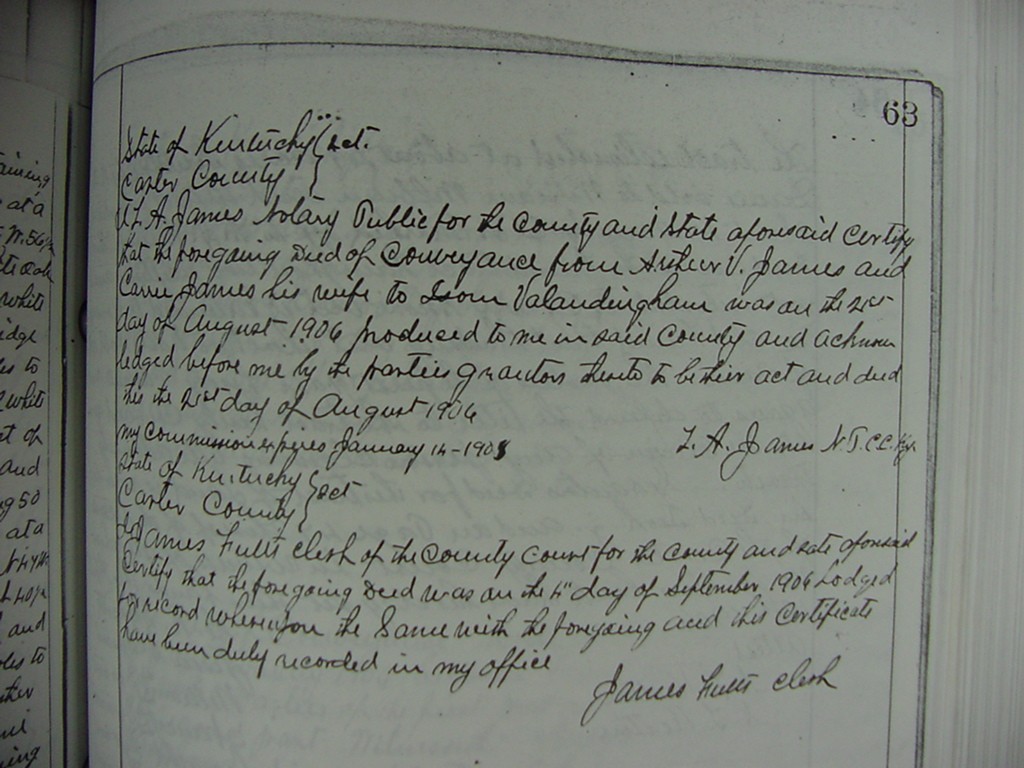 63
State of Kentucky } Sct.
Carter County }
I L. A. James Notary Public for the County and State aforesaid certify
that the foregoing Deed of Conveyance from Arthur V. James and
Carrie James his wife to Isom Valandingham was on the 21st
day of August 1906 produced to me in said County and acknow
ledged before me by the parties grantors thereto to be their act and deed
this the 21st day of August 1906
my commission expires January 14-1908
L. A. James N.P.C.C. Ky.
State of Kentucky } Sct
Carter County }
I James Fults Clerk of the County Court for the County and State aforesaid
Certify that the foregoing Deed was on the 4" day of September 1906 Lodged
for record whereupon the Same with the foregoing and this Certificate
have been duly recorded in my office
James Fults Clerk
aining
at a
white
idge
les to
white
st of
and
ng 50
at a
and
oles to